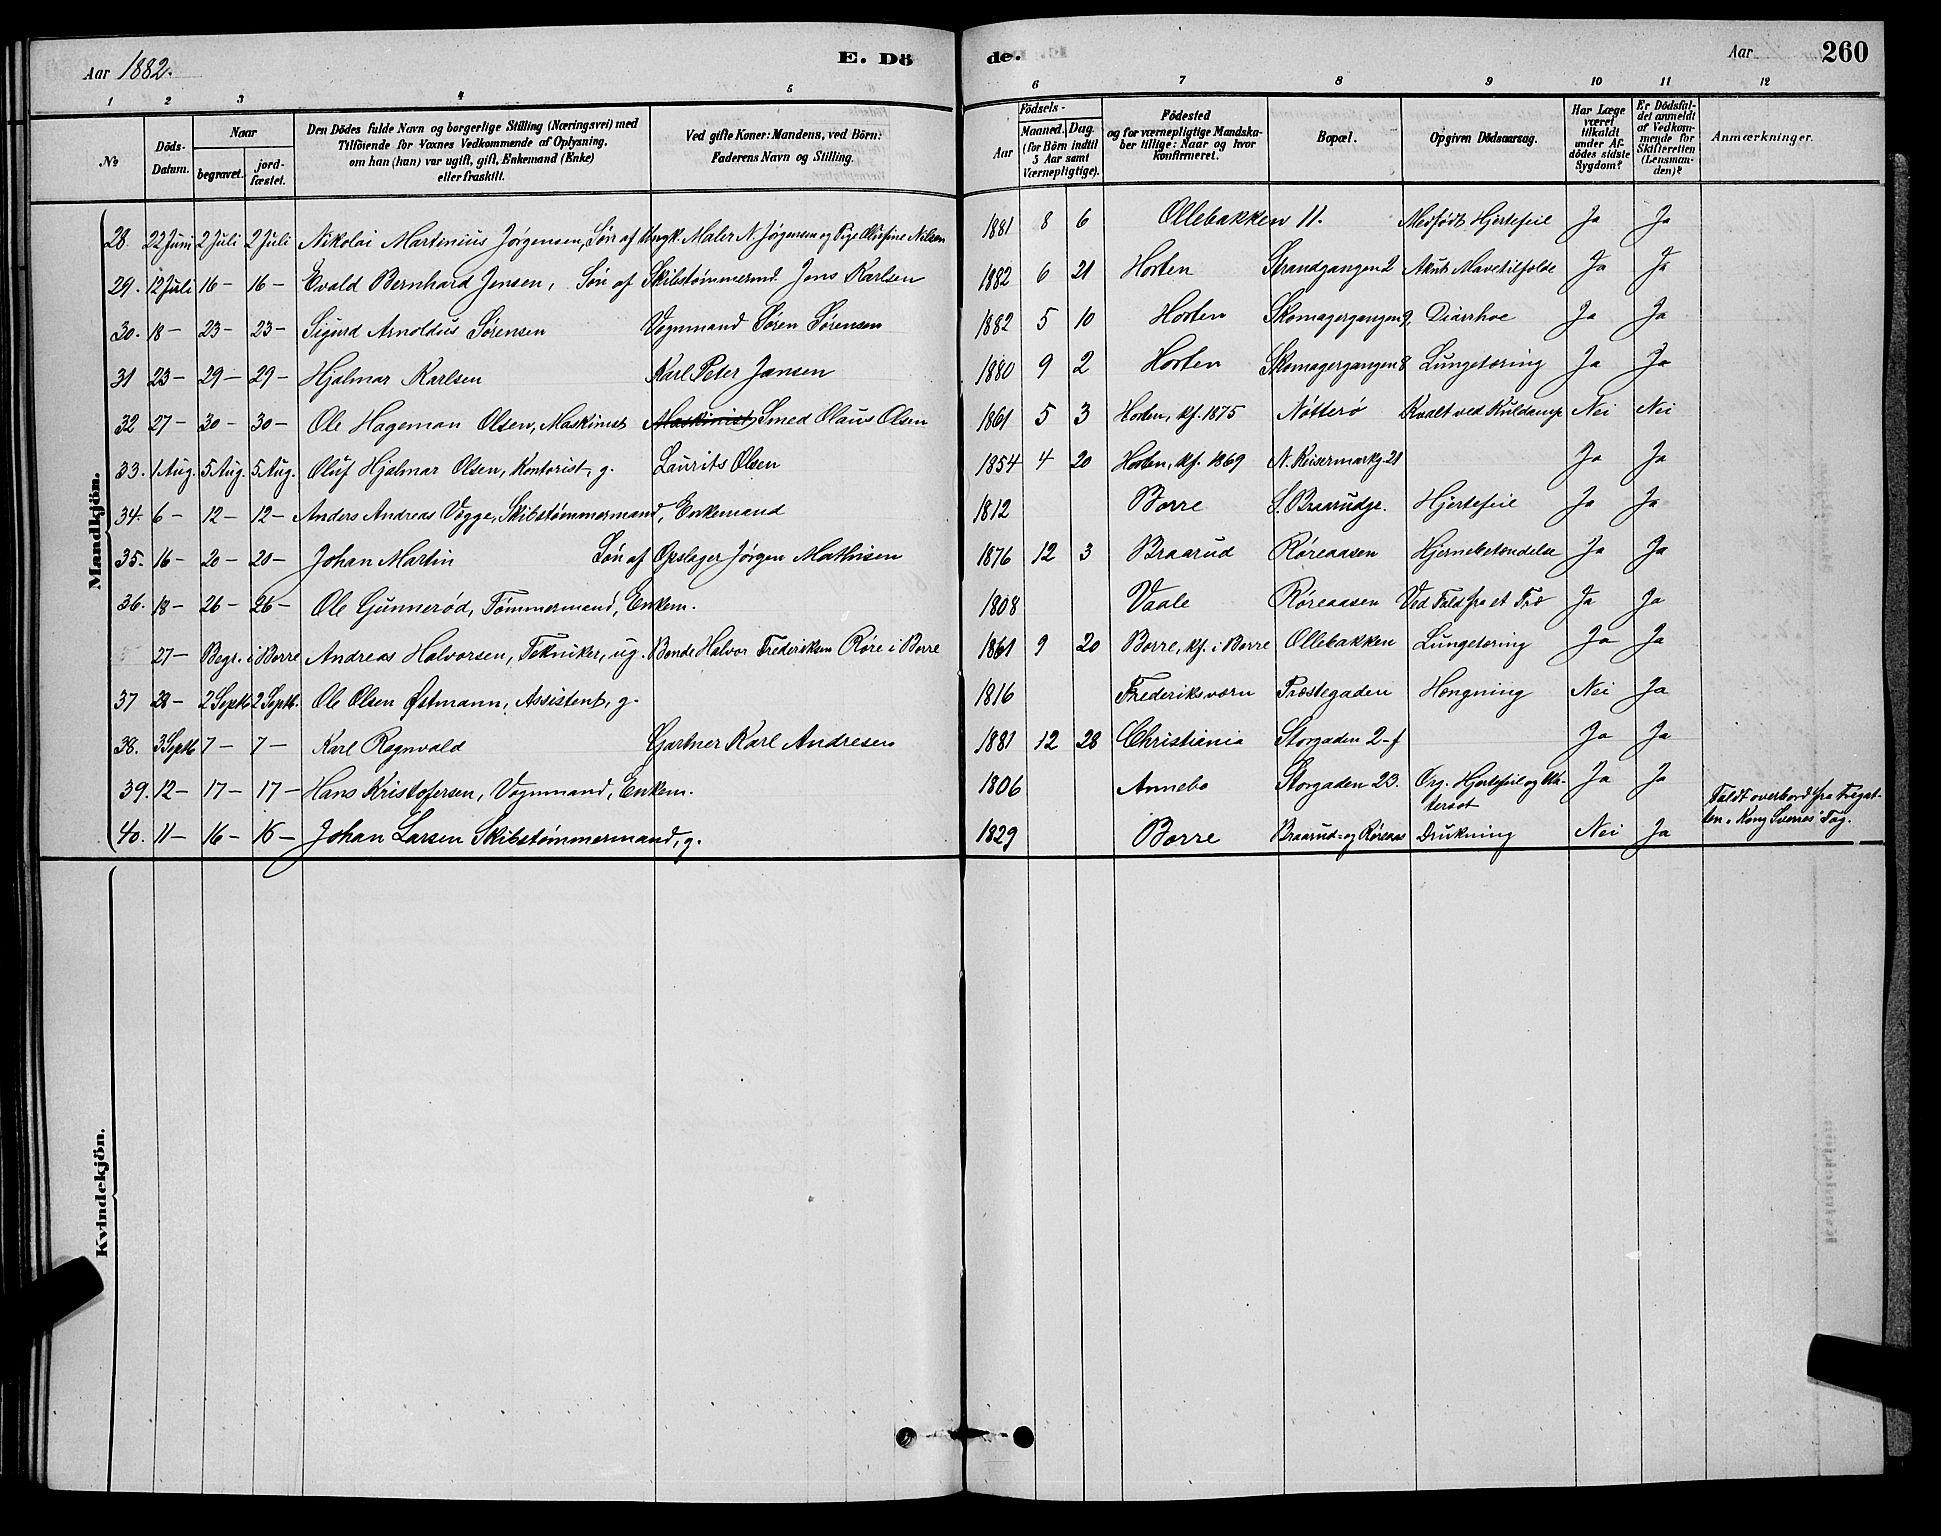 Aar 1882.
E. Dö
de.
Aar
260
1 2 3 4 5 6 7 8 9 10 11 12
No
Döds-Datum.
Naar
begravet.
jordfæstet.
Den Dödes fulde Navn og borgerlige Stilling (Næringsvei) med
Tilföiende for Voxnes Vedkommende af Oplysning,
om han (han) var ugift, gift, Enkemand (Enke)
eller fraskilt.
Ved gifte Koner: Mandens, ved Börn:
Faderens Navn og Stilling.
Födsels-
Aar
Maaned. Dag.
(for Börn indtil
5 Aar samt
Værnepligtige).
Födested
og for værnepligtige Mandska-
ber tillige: Naar og hvor
konfirmeret.
Bopæl.
Opgiven Dödsaarsag.
Har Læge
været
tilkaldt
under Af-
dödes sidste
Sygdom?
Er Dödsfal-
det anmeldt
af Vedkom-
mende for
Skifteretten
(Lensman-
den)?
Anmærkninger.
Mandkjön.
28. 22 Juni 2 Juli 2 Juli Nikolai Martinius Jørgensen, Søn af Ungk. Maler N. Jørgensen og Pige Olufine Nilsen 1881 8 6 Ollebakken 11. Medfødt Hjertefeil Ja Ja
29. 12 Juli 16 – 16 – Evald Bernhard Jensen, Søn af Skibstømmermd. Jens Karlsen 1882 6 21 Horten Strandgangen 2 Akut Mavetilfælde Ja Ja
30. 18 – 23 – 23 – Sigurd Arnoldus Sørensen Vognmand Søren Sørensen 1882 5 10 Horten Skomagergangen 9, Diarrhoe Ja Ja
31 23 – 29 – 29 – Hjalmar Karlsen Karl Peter Jansen 1880 9 2 Horten Skomagergangen 8 Lungetæring Ja Ja
32 27 – 30 – 30 – Ole Hageman Olsen, Maskinist Maskinist, Smed Olaus Olsen 1861 5 3 Horten, kf. 1875 Nøtterø Kvalt ved Kuldamp Nei Nei
33. 1 Aug. 5 Aug. 5 Aug. Oluf Hjalmar Olsen, Kontorist, g. Laurits Olsen 1854 4 20 Horten, kf. 1869 N. Keisermarkg. 21 Ja Ja
34. 6 – 12 – 12 – Anders Andreas Vegge, Skibstømmermand, Enkemand 1812 Borre S. Braarudge. Hjertefeil Ja Ja
35. 16 – 20 – 20 – Johan Martin Søn af Opslager Jørgen Mathisen 1876 12 3 Braarud Røreaasen Hjernebetændelse Ja Ja
36. 18 – 26 – 26 – Ole Gunnerød, Tømmermand, Enkem. 1808 Vaale Røreaasen Ved Fald fra et Træ Ja Ja
27 – Begr. i Borre Andreas Halvorsen, Tekniker, ug. Bonde Halvor Frederiksen Røre i Borre 1861 9 20 Borre, kf. i Borre Ollebakken Lungetæring Ja Ja
37 28 – 2 Septb. 2 Septb. Ole Olsen Østmann, Assistent, g. 1816 Frederiksværn Præstegaden Hængning Nei Ja
38. 3 Septb 7 – 7 – Karl Ragnvald Gartner Karl Andresen 1881 12 28 Christiania Storgaden 2-f Ja Ja
39. 12 – 17 – 17 – Hans Kristofersen, Vognmand, Enkem. 1806 Annebo Storgaden 23. Org. Hjertefeil og Va-
tersot Ja Ja
40. 11 – 16 – 16 – Johan Larsen Skibstømmermand, g. 1829 Borre Braarud- og Røreaas Drukning Nei Ja Faldt overbord fra Fregat-
ten "Kong Sverres" Tog.
Kvindekjön.